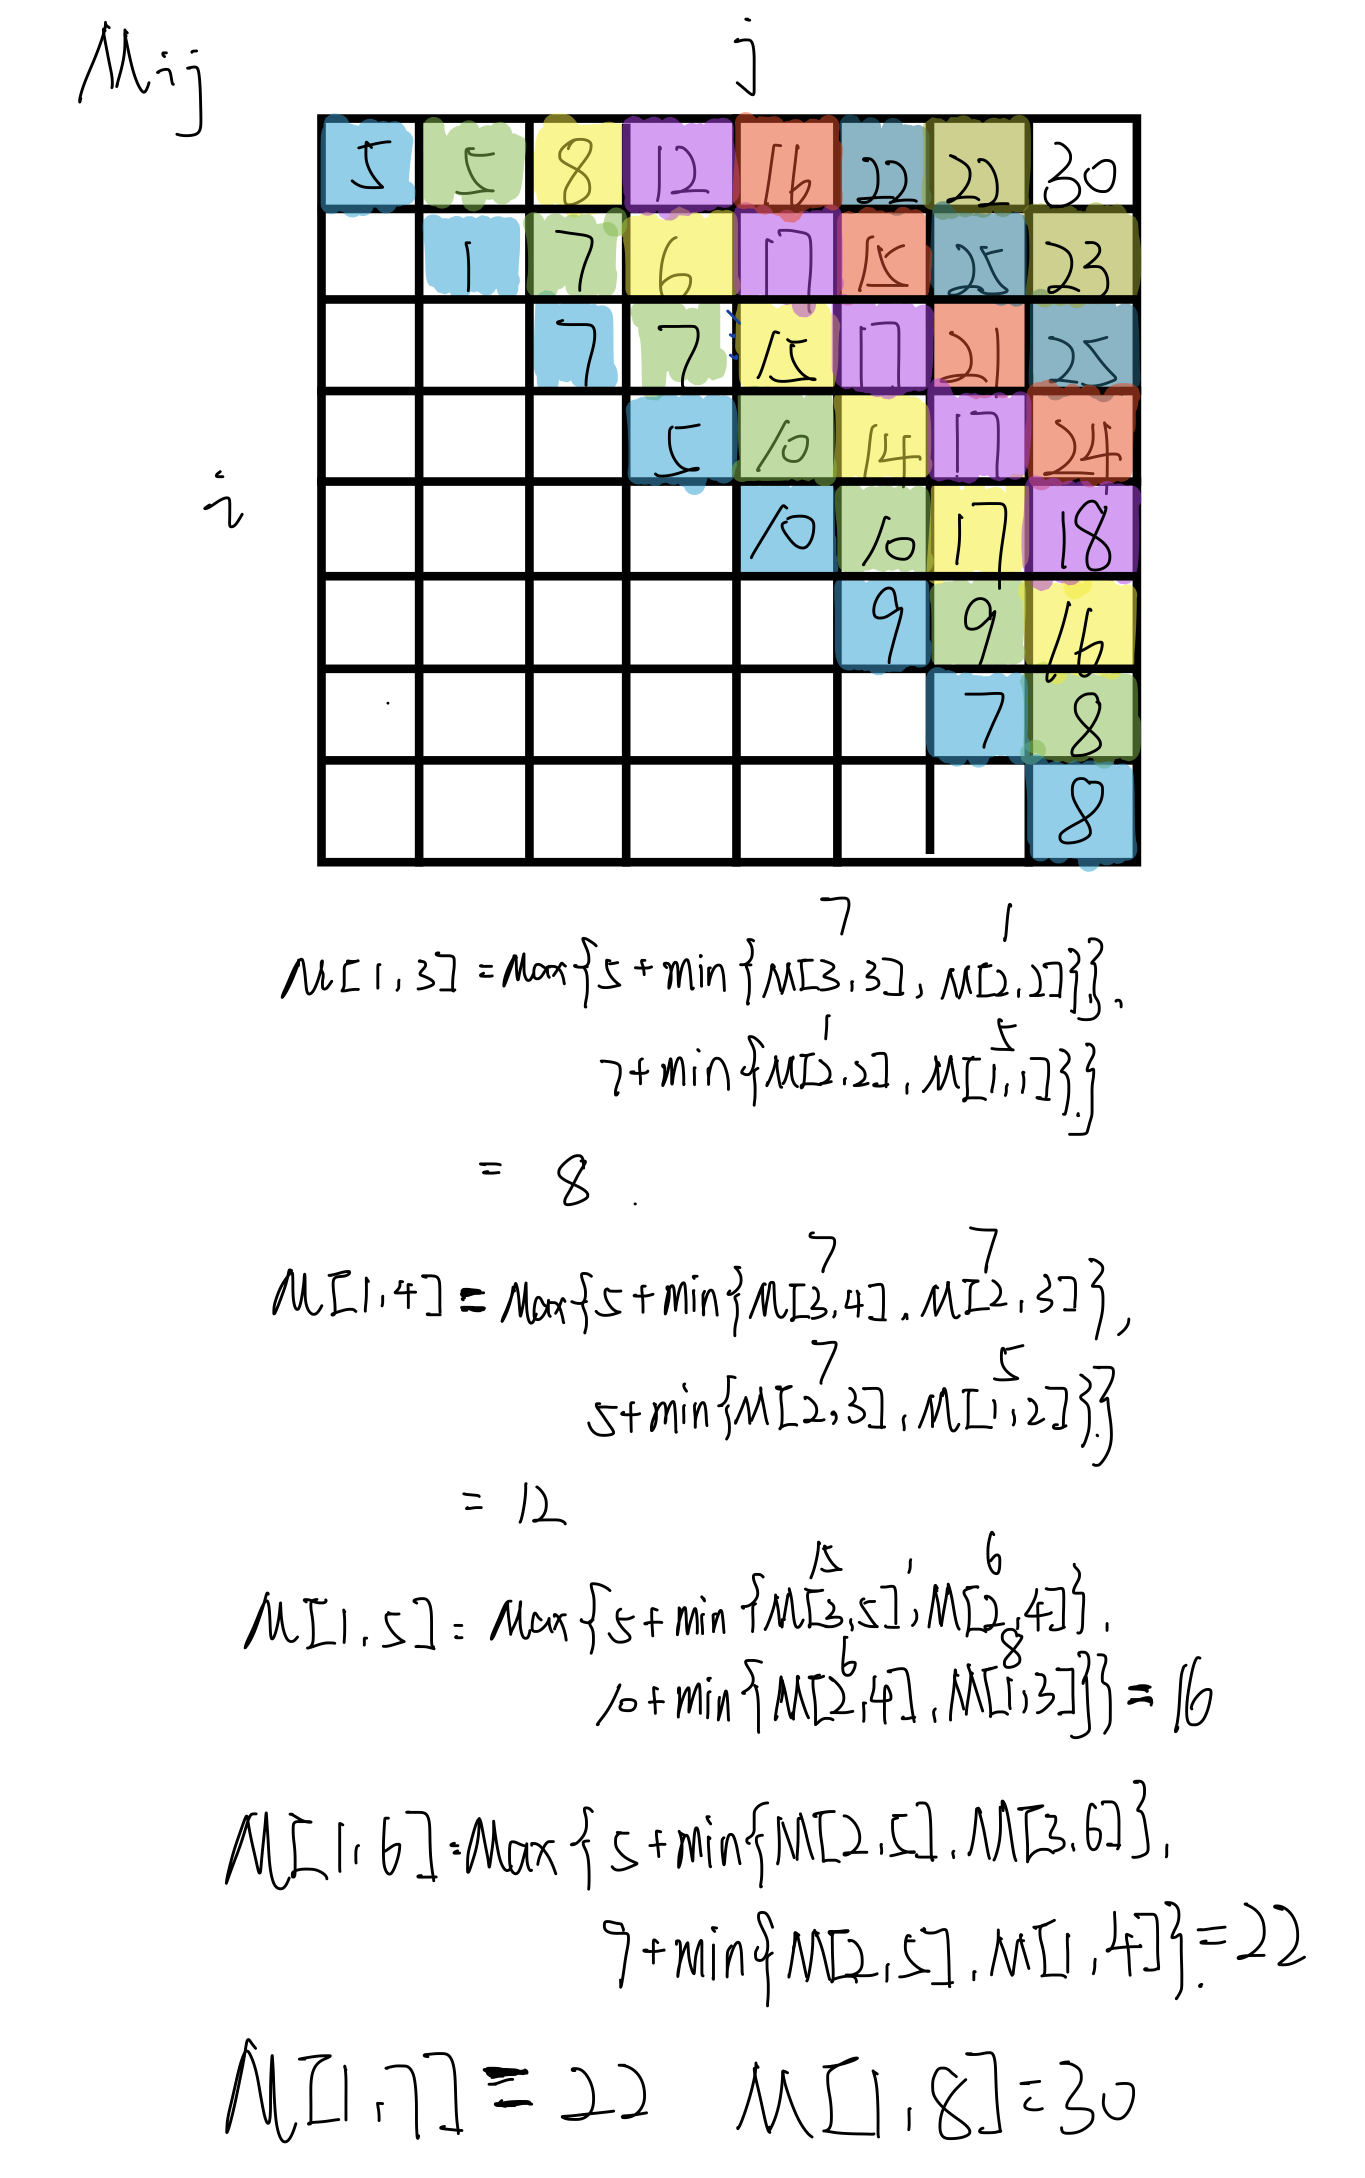 Mij
j
5 5 8 12 16 22 22 30
1 7 6 17 15 25 23
7 7 15 17 21 25
5 10 14 17 24
i
10 10 17 18
9 9 16
7 8
8
7 1
M[1,3] = Max{5+min{M[3,3], M[2,2]}}.
1 5
7+min{M[2,2], M[1,1]}.}
= 8.
7 7
M[1,4] = Max{5+min{M[3,4], M[2,3]},
7 5
5+min{M[2,3], M[1,2]}.}
= 12
15 6
M[1,5] = Max{5+min{M[3,5], M[2,4]}.
6 8
10+min{M[2,4], M[1,3]}} = 16
M[1,6] = Max{5+min{M[2,5], M[3,6]},
9+min{M[2,5], M[1,4]}. = 22
M[1,7] = 22 M[1,8] = 30